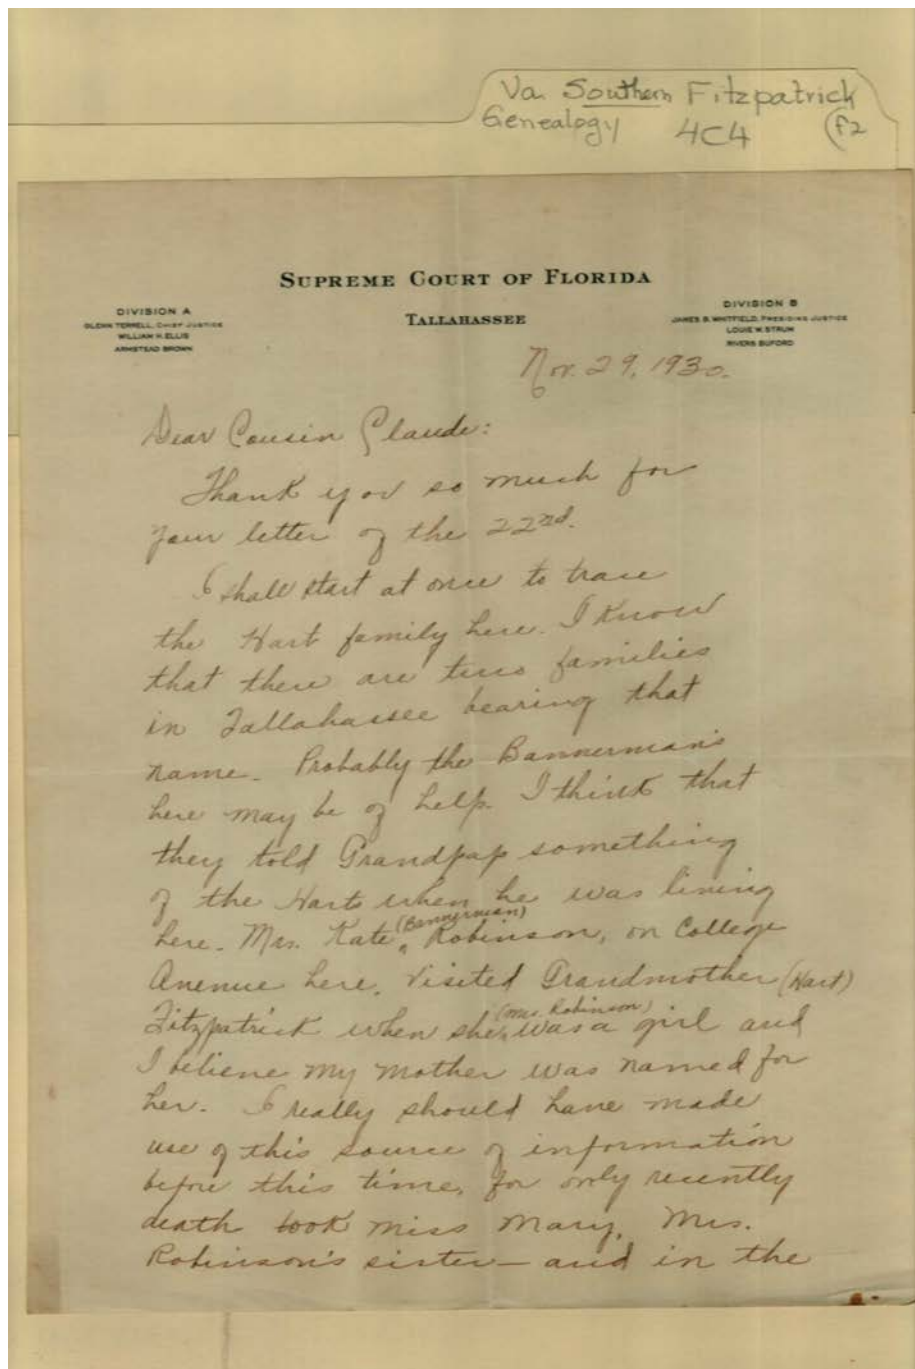 Va. Southern Fitzpatrick
Genealogy 4C4 F2
SUPREME COURT OF FLORIDA
TALLAHASSEE
DIVISION A
GLENN TERRELL, CHIEF JUSTICE
WILLIAM H. ELLIS
ARMSTEAD BROWN
DIVISION B
JAMES B. WHITFIELD, PRESIDING JUSTICE
LOUIE W. STRUM
RIVERS BUFORD
Nov. 29, 1930.
Dear Cousin Claude:
Thank you so much for
your letter of the 22nd.
I shall start at once to trace
the Hart family here. I know
that there are two families
in Tallahassee bearing that
name. Probably the Bannerman's
here may be of help. I think that
they told Grandpap something
of the Harts when he was living
here. Mrs. Kate (Bannerman) Robinson, on College
Avenue here, visited Grandmother (Hart)
Fitzpatrick when she (Mrs. Robinson) was a girl and
I believe my mother was named for
her. I really should have made
use of this source of information
before this time, for only recently
death took Miss Mary, Mrs.
Robinson's sister — and in the